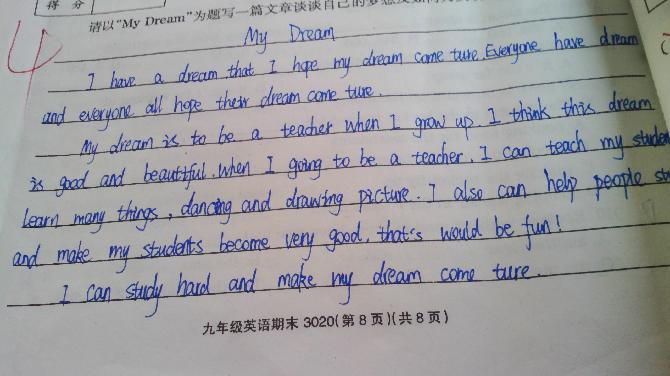 得 分
请以“My Dream”为题写一篇文章谈谈自己的梦想
4
My Dream
I have a dream that I hope my dream come ture. Everyone have dream
and everyone all hope their dream come ture.
My dream is to be a teacher when I grow up. I think this dream
is good and beautiful. when I going to be a teacher. I can teach my
learn many things, dancing and drawing picture. I also can help people
and make my students become very good. that's would be fun!
I can study hard and make my dream come ture.
九年级英语期末 3020(第 8 页)(共 8 页)